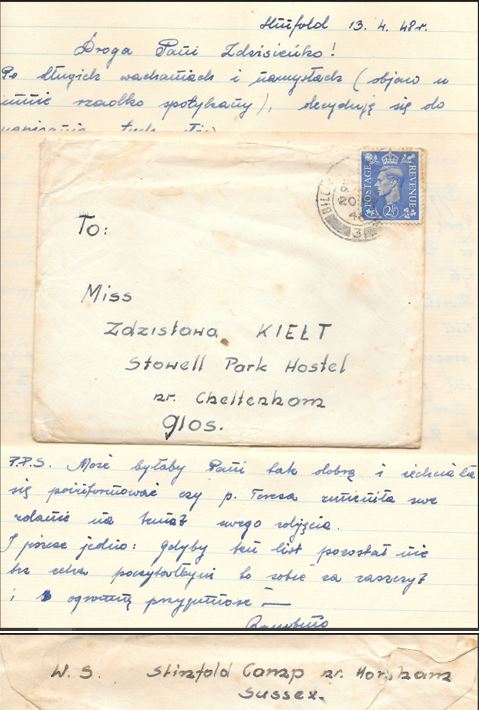 13. 4. 48r.
Droga Pani Zdzisieńko!
Po długich wachaniach i namysłach (objaw u
mnie rzadko spotykany), decyduję się do
POSTAGE REVENUE
2½
BILLI
20
48
3
To:
Miss
Zdzisława KIEŁT
Stowell Park Hostel
nr. Cheltenham
Glos.
P.P.S. Może byłaby Pani tak dobrą i zechciała
się poinformować czy p. Teresa zmieniła swe
zdanie na temat swego zdjęcia.
I jeszcze jedno: gdyby ten list pozostał nie
bez echa poczytałbym to sobie za zaszczyt
i ogromną przyjemność —
W. S. Slinfold Camp nr. Horsham
Sussex.